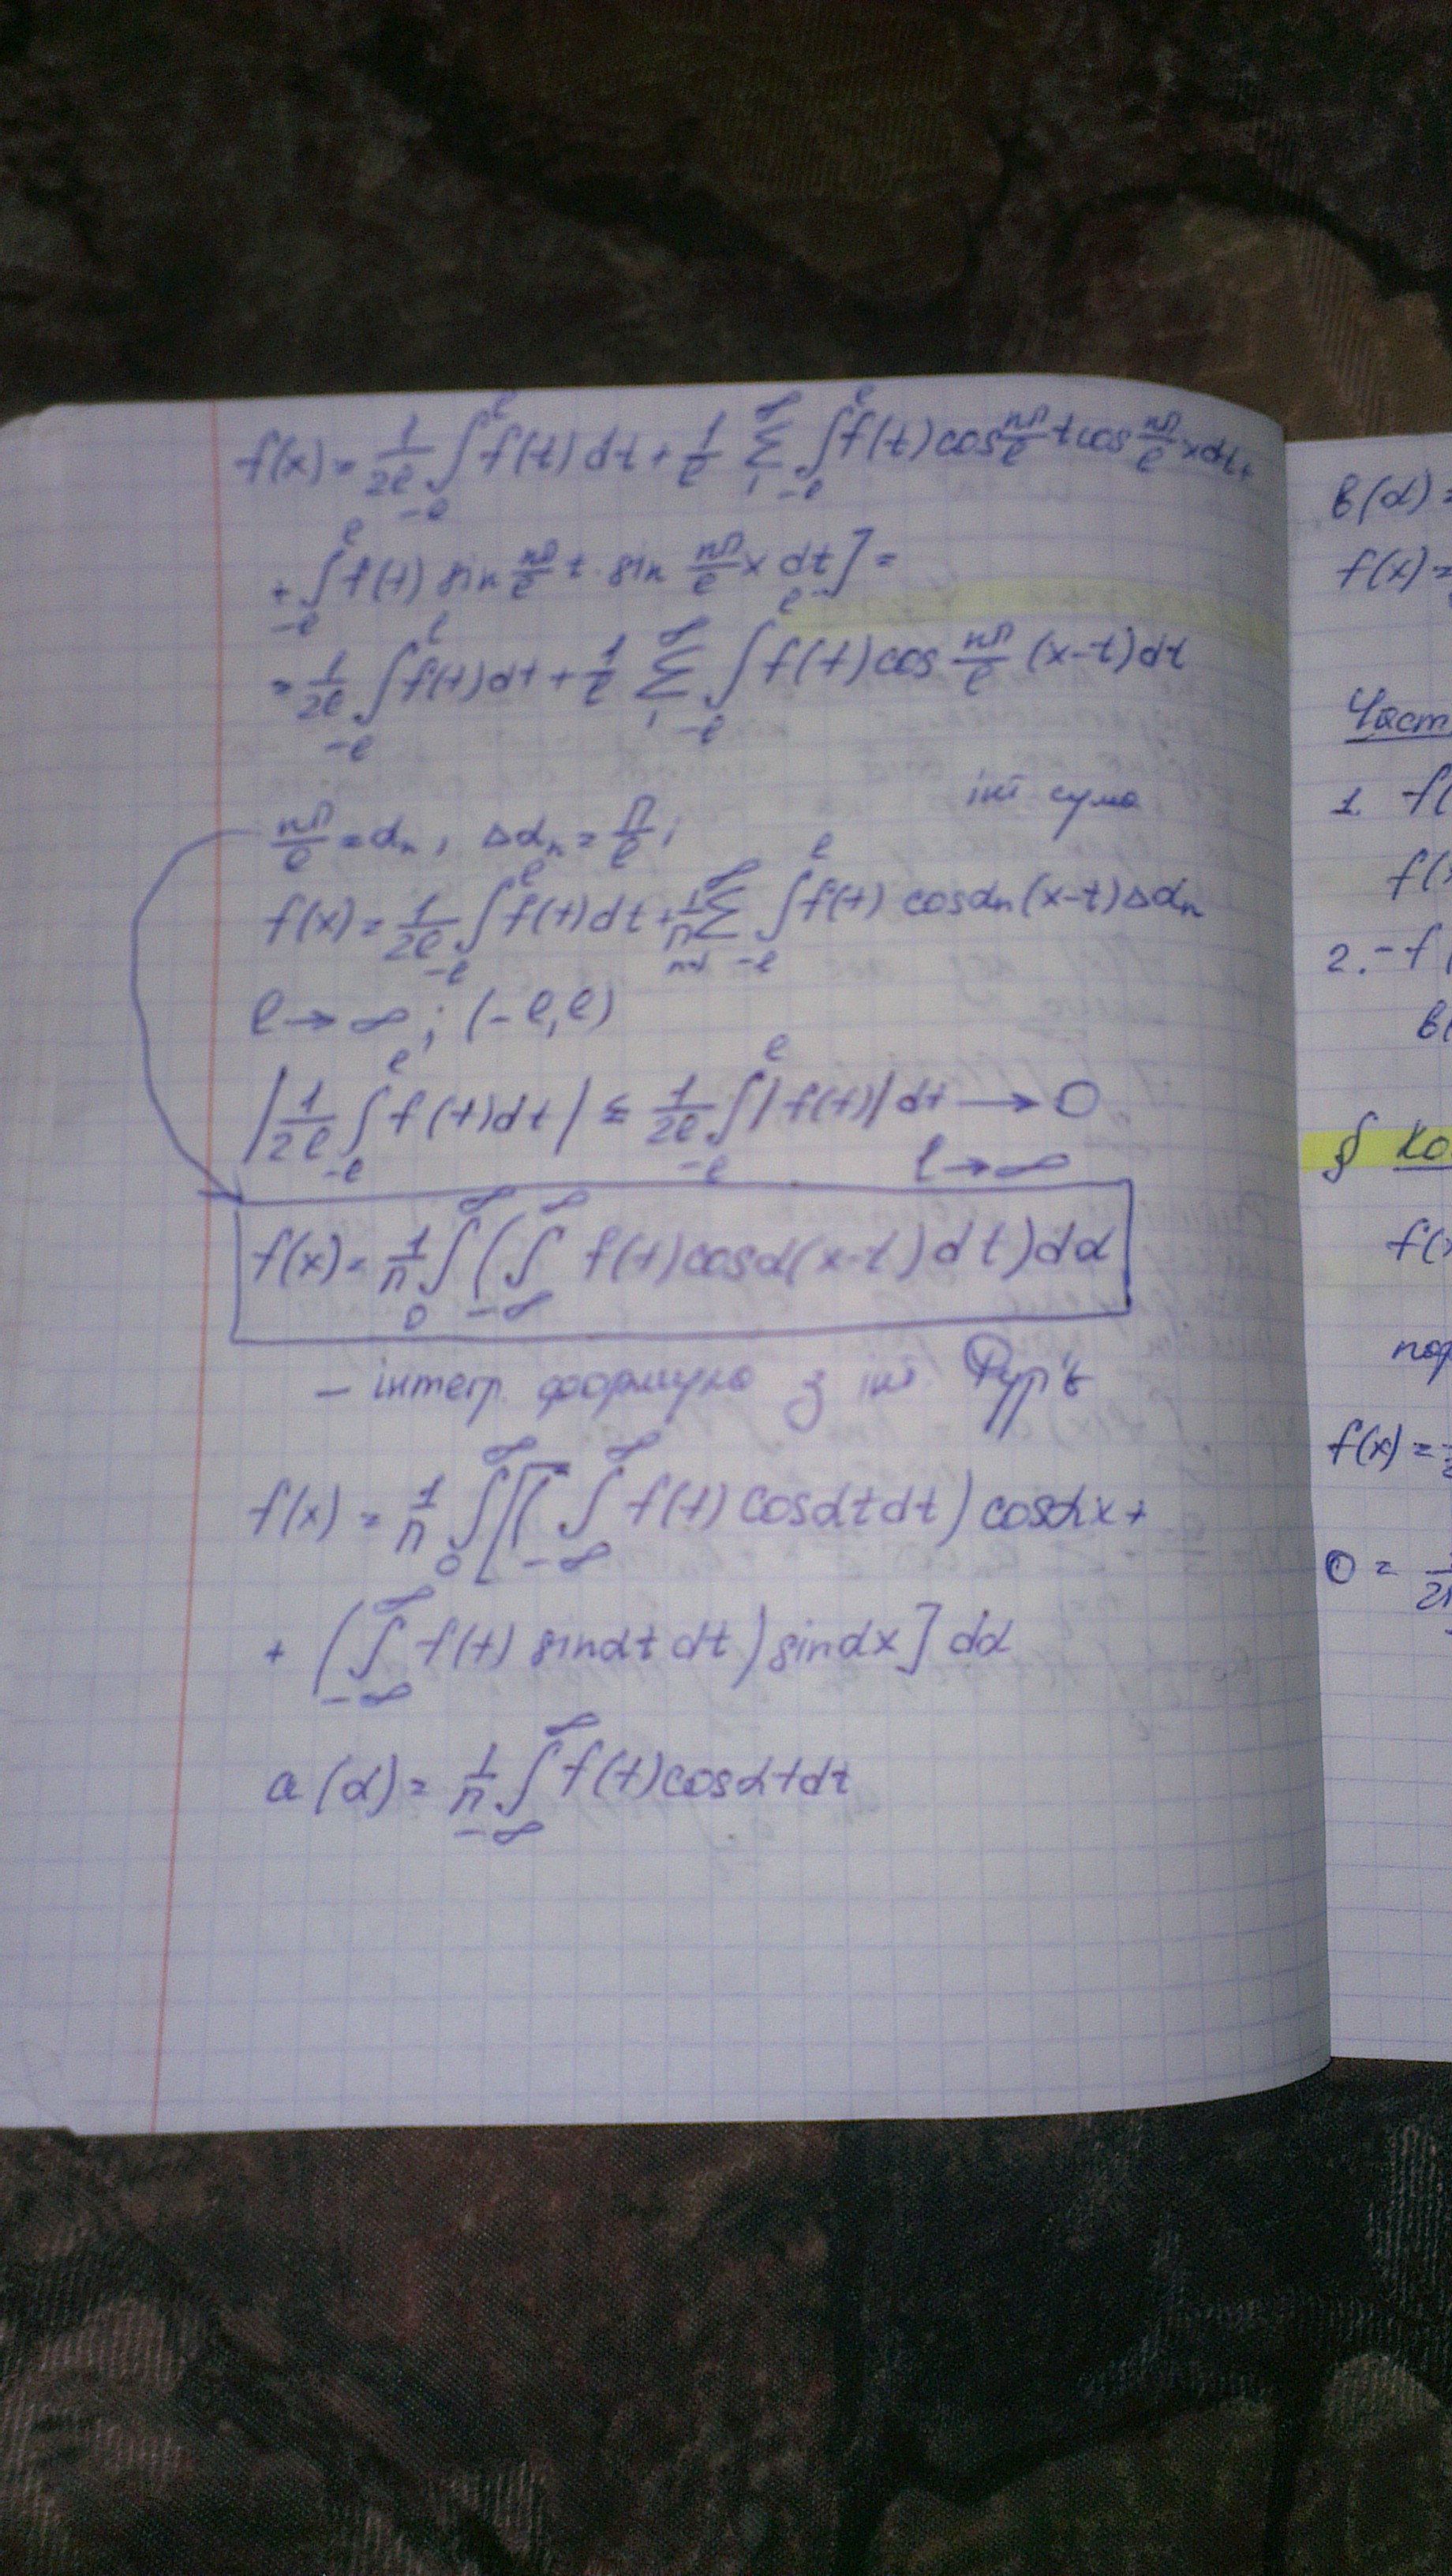 f(x) = 1/2ℓ ∫_{-ℓ}^{ℓ} f(t) dt + 1/ℓ Σ_{1}^{∞} ∫_{-ℓ}^{ℓ} f(t) cos nπ/ℓ t cos nπ/ℓ x dt +
+ ∫_{-ℓ}^{ℓ} f(t) sin nπ/ℓ t · sin nπ/ℓ x dt] =
= 1/2ℓ ∫_{-ℓ}^{ℓ} f(t) dt + 1/ℓ Σ_{1}^{∞} ∫_{-ℓ}^{ℓ} f(t) cos nπ/ℓ (x-t) dt
інт сума
nπ/ℓ = α_n, Δα_n = π/ℓ;
f(x) = 1/2ℓ ∫_{-ℓ}^{ℓ} f(t) dt + 1/π Σ_{n=1}^{∞} ∫_{-ℓ}^{ℓ} f(t) cos α_n (x-t) Δα_n
ℓ → ∞; (-ℓ, ℓ)
|1/2ℓ ∫_{-ℓ}^{ℓ} f(t) dt| ≤ 1/2ℓ ∫_{-ℓ}^{ℓ} |f(t)| dt → 0
ℓ → ∞
f(x) = 1/π ∫_{0}^{∞} (∫_{-∞}^{∞} f(t) cos α(x-t) dt) dα
– інтегр. формула з інт. Фур'є
f(x) = 1/π ∫_{0}^{∞} [(∫_{-∞}^{∞} f(t) cos αt dt) cos αx +
+ (∫_{-∞}^{∞} f(t) sin αt dt) sin αx] dα
a(α) = 1/π ∫_{-∞}^{∞} f(t) cos αt dt
b(α) =
f(x) =
Част
1. f(
f(x
2. - f(
b(
§ Ко
f(x
f(x) =
0 =